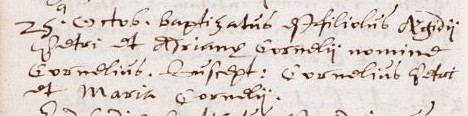 25. Octob. baptizatus est filiolus Ægidij
Petri et Adrianæ Cornelij nomine
Cornelius. Suscept: Cornelius Petri
et Maria Cornelij.